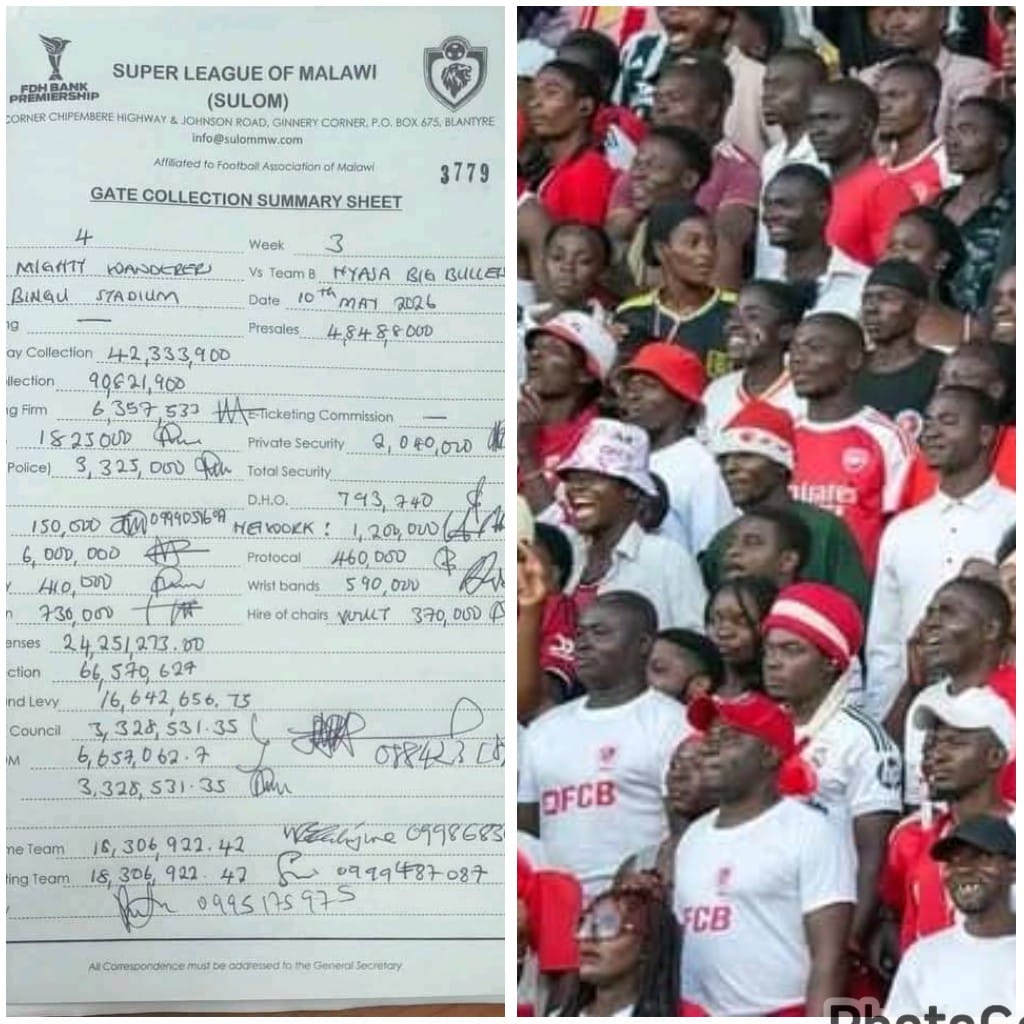 FDH BANK
PREMIERSHIP
SUPER LEAGUE OF MALAWI
(SULOM)
CORNER CHIPEMBERE HIGHWAY & JOHNSON ROAD, GINNERY CORNER, P.O. BOX 675, BLANTYRE
info@sulommw.com
Affiliated to Football Association of Malawi
3779
GATE COLLECTION SUMMARY SHEET
4 Week 3
MIGHTY WANDERERS Vs Team B NYASA BIG BULLE
BINGU STADIUM Date 10th MAY 2026
g — Presales 48488000
ay Collection 42,333,900
llection 90821,900
g Firm 6,357,533 E-Ticketing Commission —
1825000 Private Security 2,040,000
Police) 3,325,000 Total Security
D.H.O. 793,740
150,000 NETWORK: 1,200,000
6,000,000 Protocal 460,000
410,000 Wrist bands 590,000
730,000 Hire of chairs 370,000
enses 24,251,273.00
ction 66,570,627
nd Levy 16,642,656.75
Council 3,328,531.35
M 6,657,062.7 088423
3,328,531.35
me Team 18,306,922.42 0998683
ting Team 18,306,922.42 0999487087
0995175975
All Correspondence must be addressed to the General Secretary
Emirates
DFCB
FCB
PhotoCo